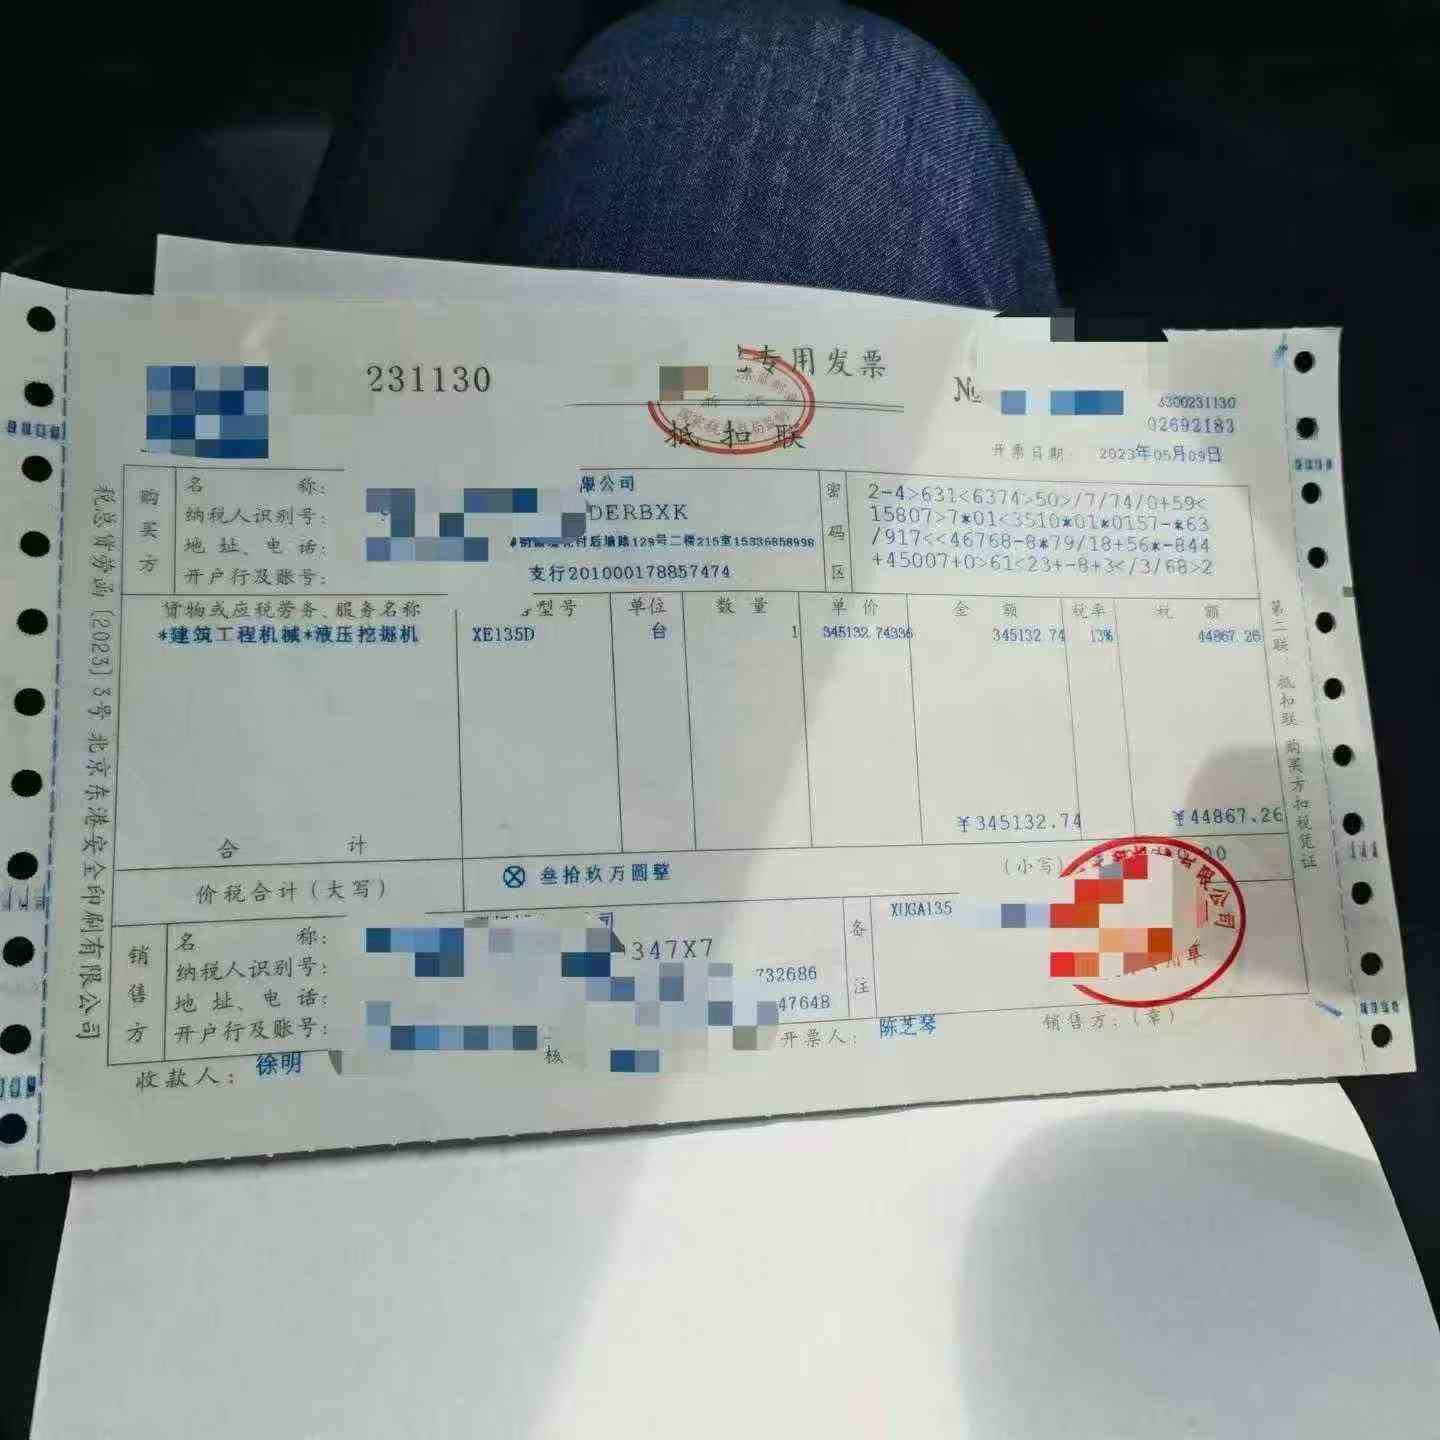 231130
专用发票
抵扣联
№
3300231130
02692183
开票日期: 2023年05月09日
税总货劳函〔2023〕3号 北京东港安全印刷有限公司
购买方
名 称:
限公司
纳税人识别号:
DERBXK
地址、电话:
后塘路129号二楼215室15336858998
开户行及账号:
支行201000178857474
密码区
2-4>631<6374>50>/7/74/0+59<
15807>7*01<3510*01*0157-*63
/917<<46768-8*79/18+56*-844
+45007+0>61<23+-8+3</3/68>2
货物或应税劳务、服务名称 型号 单位 数量 单价 金额 税率 税额
*建筑工程机械*液压挖掘机 XE135D 台 1 345132.74336 345132.74 13% 44867.26
合 计 ¥345132.74 ¥44867.26
价税合计(大写) ⊗ 叁拾玖万圆整 (小写)
销售方
名 称:
纳税人识别号:
347X7
地址、电话:
732686
开户行及账号:
47648
备注
XUGA135
收款人: 徐明 核 开票人: 陈芝琴 销售方:(章)
第二联:抵扣联 购买方扣税凭证